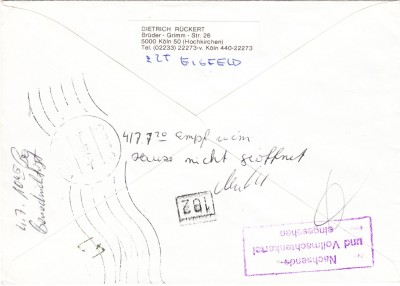 DIETRICH RÜCKERT
Brüder - Grimm - Str. 26
5000 Köln 50 (Hochkirchen)
Tel. (02233) 22273-v. Köln 440-22273
ZZT EISFELD
4/7 7 20 Empf
nicht geöffnet
182
4.7. 1005
Nachsende-
und Vollmachtenkartei
eingesehen